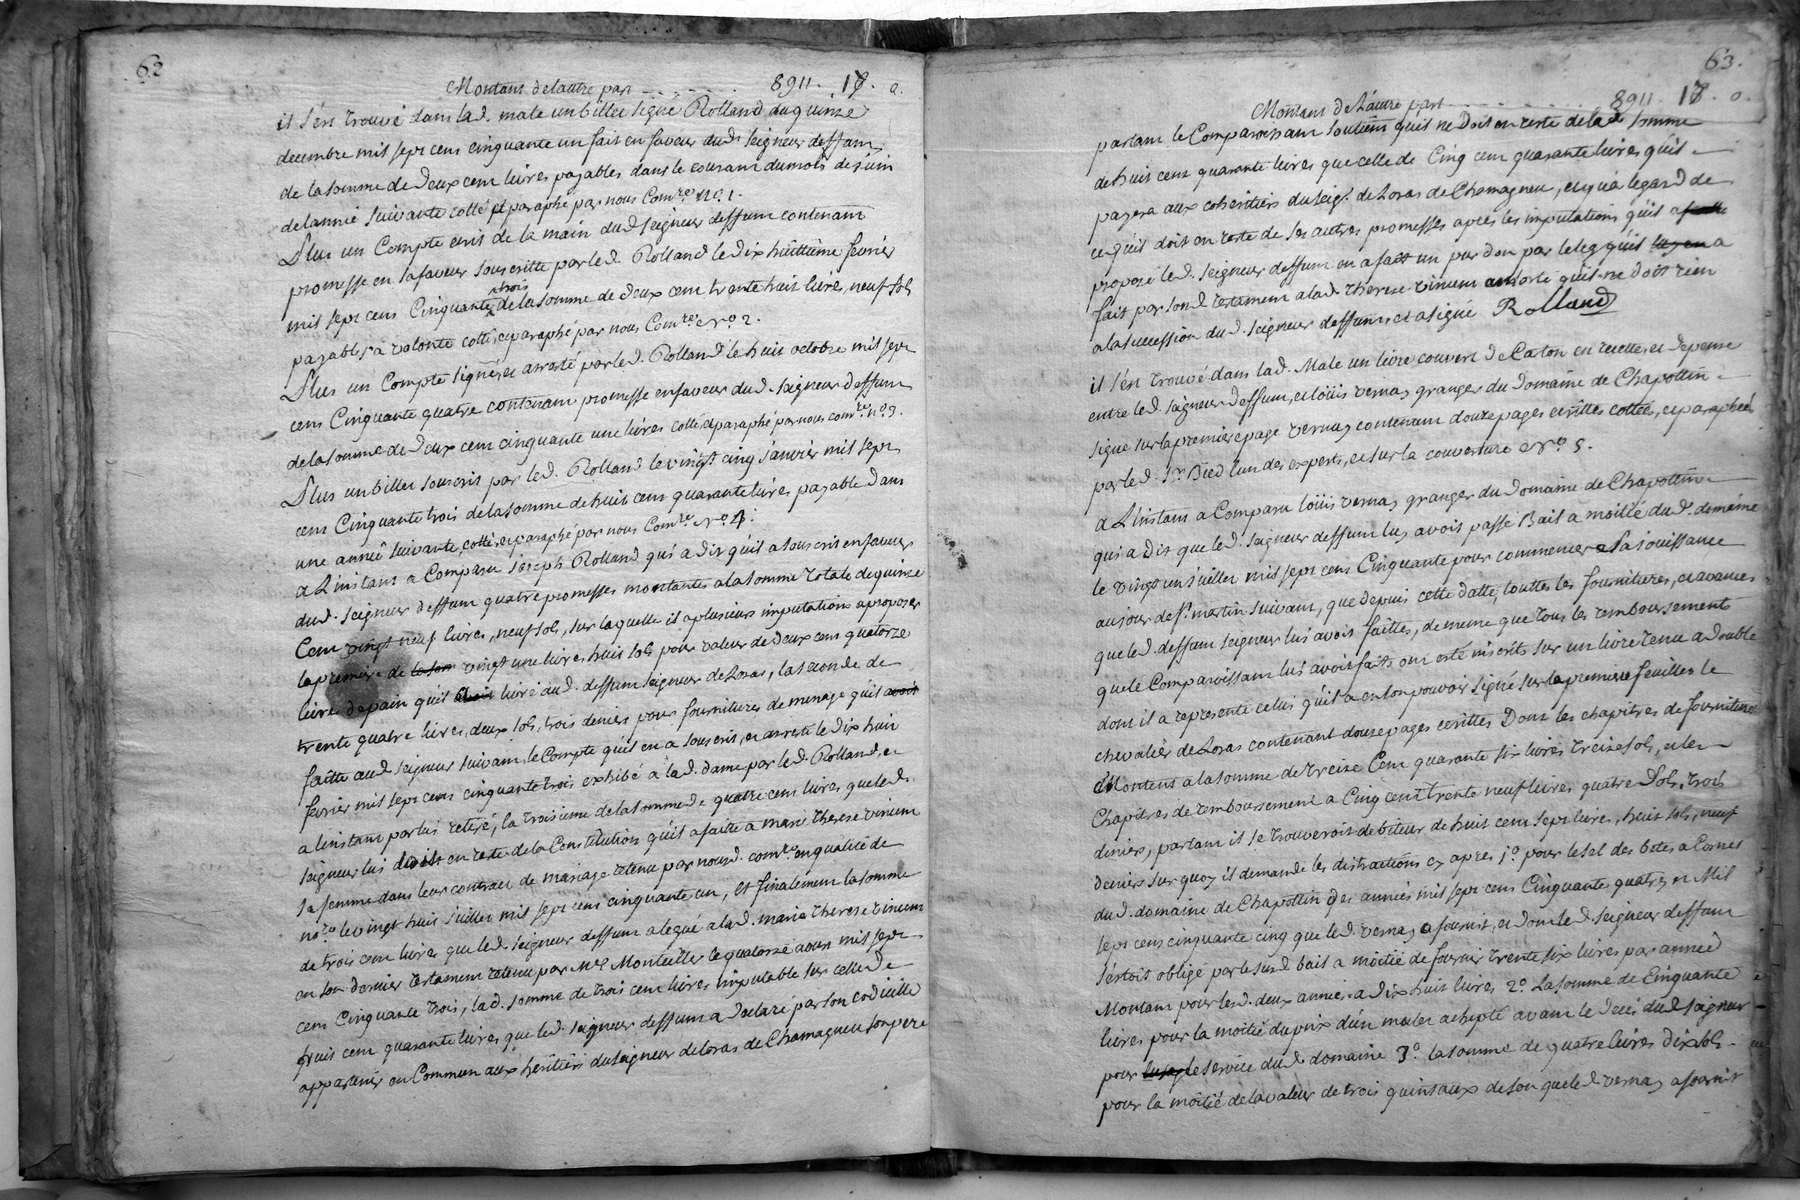 62
Montant de lautre part 8911. 18. 0.
il s'en trouvé dans lad. male un billet signé Rolland du quinze
decembre mil sept cens cinquante un fait en faveur dud. seigneur deffunt
de la somme de deux cent livres payables dans le courant du mois de juin
de lanneé suivante cotté et paraphé par nous Comre. No. 1.
Plus un Compte ecrit de la main dud. seigneur deffunt contenant
promesse en sa faveur souscritte par led. Rolland le dix huittieme fevrier
mil sept cens Cinquante trois de la somme de deux cent trente huit livres, neuf sols
payables a volonté cotté, et paraphé par nous Comre. No. 2.
Plus un Compte signé, et arresté par led. Rolland le huit octobre mil sept
cens Cinquante quatre contenant promesse en faveur dud. seigneur deffunt
de la somme de deux cent cinquante une livres cotté et paraphé par nous comre. no. 3.
Plus un billet souscrit par led. Rolland le vingt cinq janvier mil sept
cens Cinquante trois de la somme de huit cent quarante livres payable dans
une anneé suivante, cotté, et paraphé par nous Comre. No. 4.
a L'instant a Comparu joseph Rolland qui a dit qu'il a souscrit en faveur
dud. seigneur deffunt quatre promesses montantes a la somme totale de quinze
Cent vingt neuf livres, neuf sols, sur laquelle il a plusieurs imputations a proposer
la premiere de vingt une livres huit sols pour valeur de deux cent quatorze
livre de pain qu'il livré aud. deffunt seigneur de Loras, la seconde de
trente quatre livres, deux sols, trois deniers pour fournitures de menage qu'il
faitte aud. seigneur suivant le Compte qu'il en a souscrit, et arresté le dix huit
fevrier mil sept cens cinquante trois exhibé a lad. dame par led. Rolland, et
a linstant par lui retiré, la troisieme de la somme de quatre cent livres que led.
seigneur lui doit en reste de la Constitution qu'il a faitte a marie Therese vincent
sa femme dans leur contract de mariage retenu par nousd. comre. en qualité de
nore. le vingt huit juillet mil sept cens cinquante un, et finalement la somme
de trois cent livres que led. seigneur deffunt a legué a lad. marie Therese vincent
en son dernier testament retenu par Me. Monteiller le quatorze aoust mil sept
cens Cinquante trois, lad. somme de trois cent livres imputable sur celle de
huit cent quarante livres que led. seigneur deffunt a declaré par son codicille
appartenir en Commun aux heritiers du seigneur de loras de Chamagneu son pere
63.
Montant de L'autre part 8911. 18. 0.
partant le Comparoissant soutient qu'il ne doit en reste de lad. somme
de huit cent quarante livres que celle de Cinq cent quarante livres qu'il
payera aux coheritiers du seigr. de Loras de Chamagneu, et qu'a legard de
ce qu'il doit en reste de ses autres promesses apres les imputations qu'il a
proposé led. seigneur deffunt en a fait un pur don par le leg qu'il a
fait par sond. testament a lad. Therese vincent ensorte qu'il ne doit rien
a la succession dud. seigneur deffunt et a signé Rolland
il s'en trouvé dans lad. Male un livre couvert de Carton en recette, et depense
entre led. seigneur deffunt, et loüis vernay granger du Domaine de Chapottin
signé sur la premiere page vernay contenant douze pages ecrittes cottées, et paraphées
par led. Sr. Bied lun des experts, et sur la couverture No. 5.
a L'instant a Comparu loüis vernay granger du Domaine de Chapottin
qui a dit que led. seigneur deffunt luy avoit passé Bail a moitié dud. domaine
le vingt un juillet mil sept cens Cinquante pour commencer sa jouissance
au jour de St. martin suivant, que depuis cette datte, touttes les fournitures, et avances
que led. deffunt seigneur lui avoit faittes, de meme que tous les remboursements
que le Comparoissant lui avoit faits ont esté inscrits sur un livre tenu a double
dont il a representé celui qu'il a en son pouvoir signé sur la premiere feuille le
chevalier de Loras contenant douze pages ecrittes Dont les chapitres de fourniture
Montent a la somme de treize Cent quarante six livres treize sols, et les
Chapitres de remboursement a Cinq cent trente neuf livres quatre sols, trois
deniers, partant il se trouveroit debiteur de huit cent sept livres, huit sols, neuf
deniers sur quoy il demande les distractions cy apres 1o. pour le sel des betes a Cornes
dud. domaine de Chapottin des années mil sept cens Cinquante quatre, et Mil
sept cens cinquante cinq que led. vernay a fournit, et dont led. seigneur deffunt
s'estoit obligé par le susd. bail a moitié de fournir trente six livres par anneé
Montant pour lesd. deux années a dix huit livres 2o. La somme de Cinquante
livres pour la moitié du prix d'un mulet achepté avant le deces dud. seigneur
pour le service dud. domaine 3o. la somme de quatre livres dix sols
pour la moitié de la valeur de trois quintaux de son que led. vernay a fournit